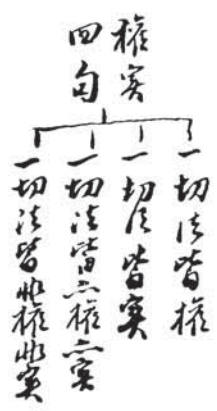 權实
四句
一切法皆權
一切法皆实
一切法皆亦權亦实
一切法皆非權非实